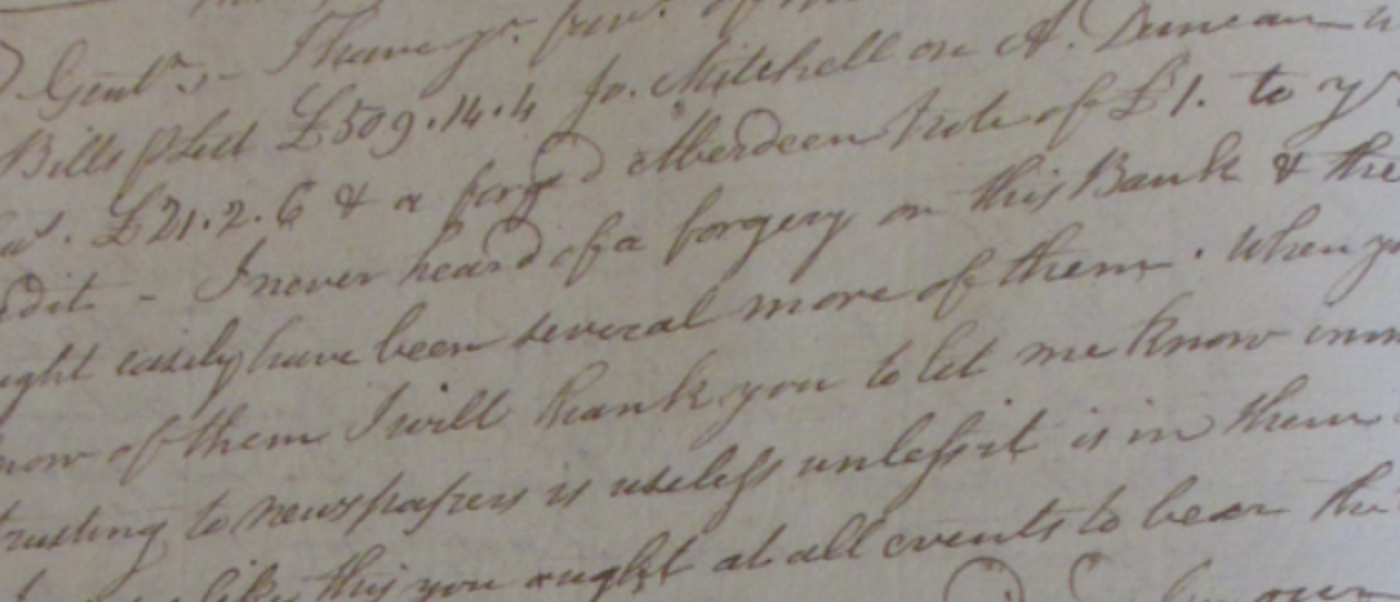 Gentn. - I have yr. favr. of
Bills p List £509.14.4 Jo. Mitchell on A. Duncan
£21.2.6 & a forged Aberdeen Note of £1. to yr
edit - I never heard of a forgery on this Bank & the
ught easily have been several more of them. When yo
now of them I will thank you to let me know imm
rusting to newspapers is useless unless it is in them
like this you ought at all events to bear the
our